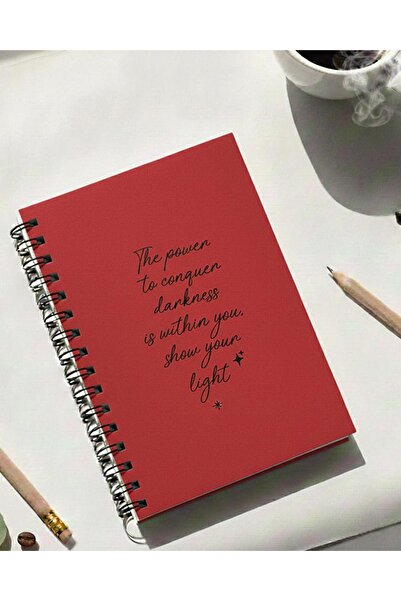 The power
to conquer
darkness
is within you,
show your
light